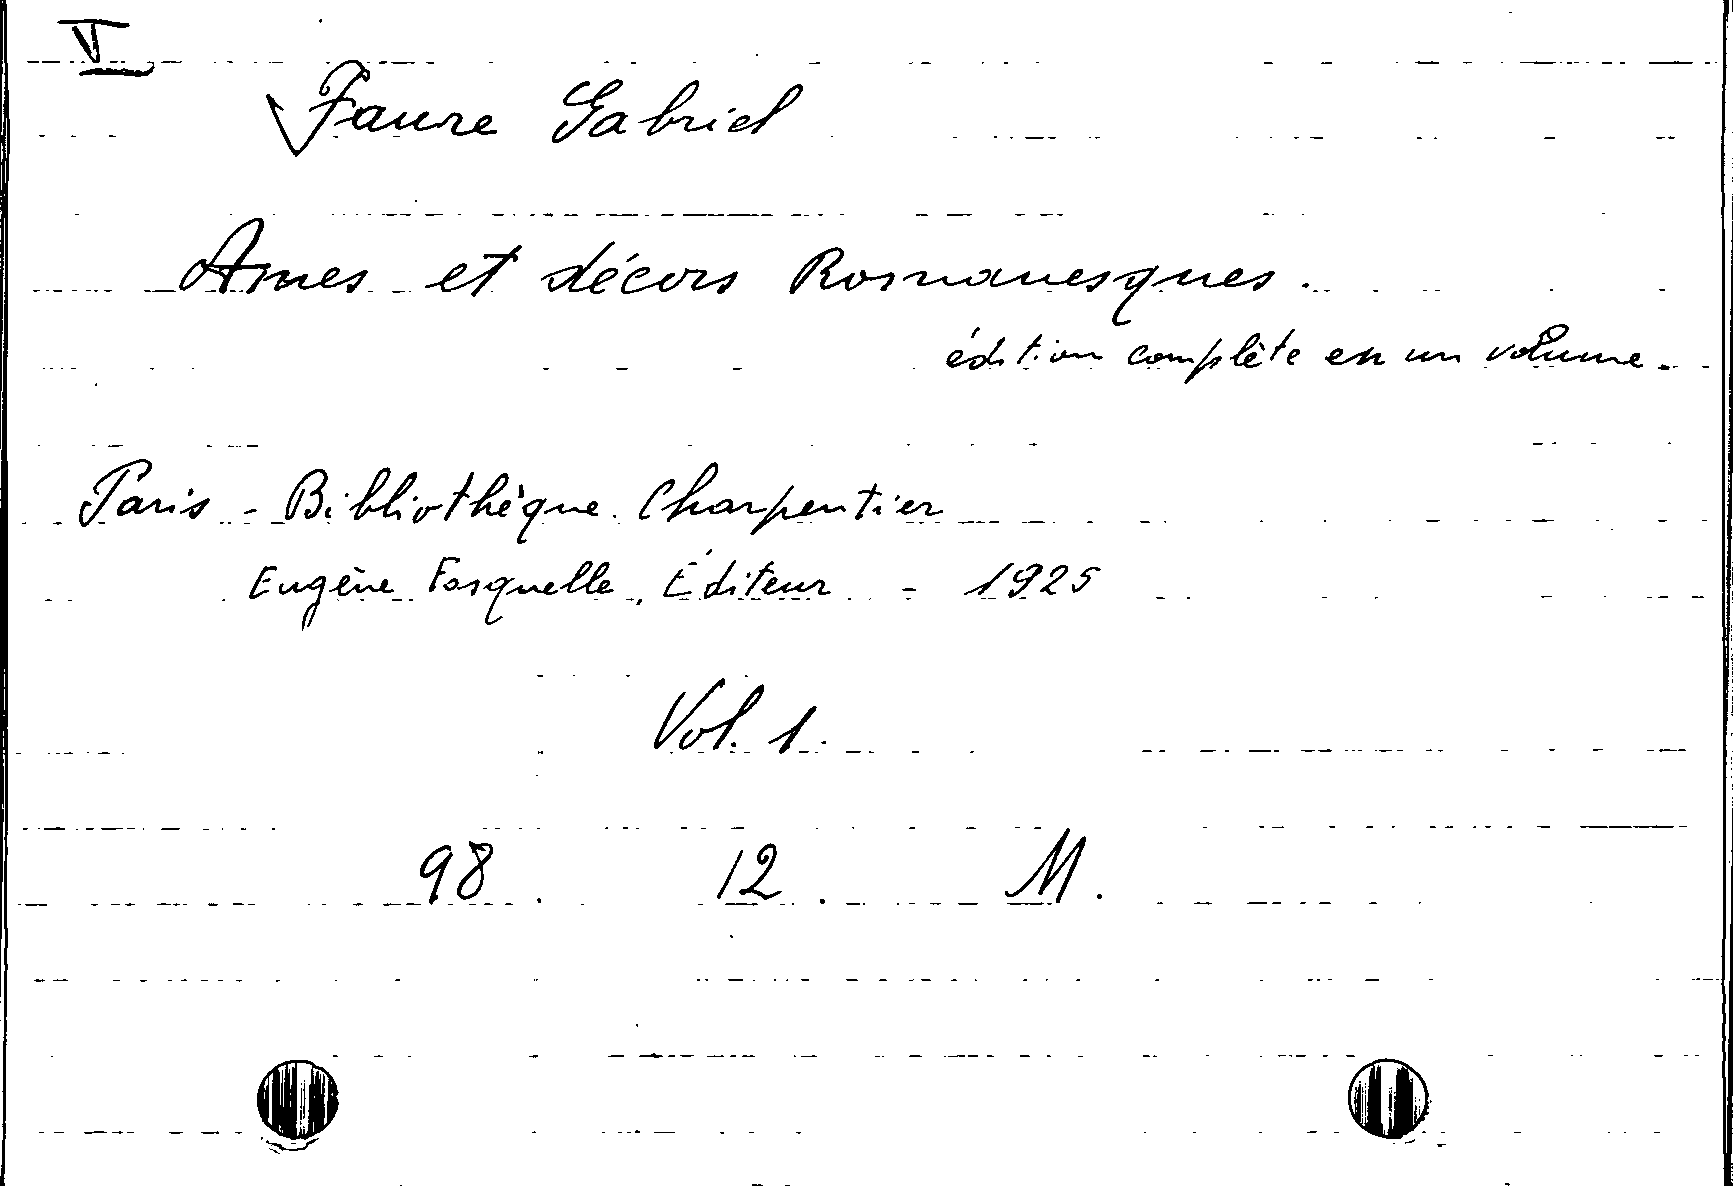 V
Faure Gabriel
Ames et décors Romanesques.
édition complète en un volume.
Paris - Bibliothèque Charpentier
Eugène Fasquelle, Éditeur - 1925
Vol. 1.
98. 12. M.